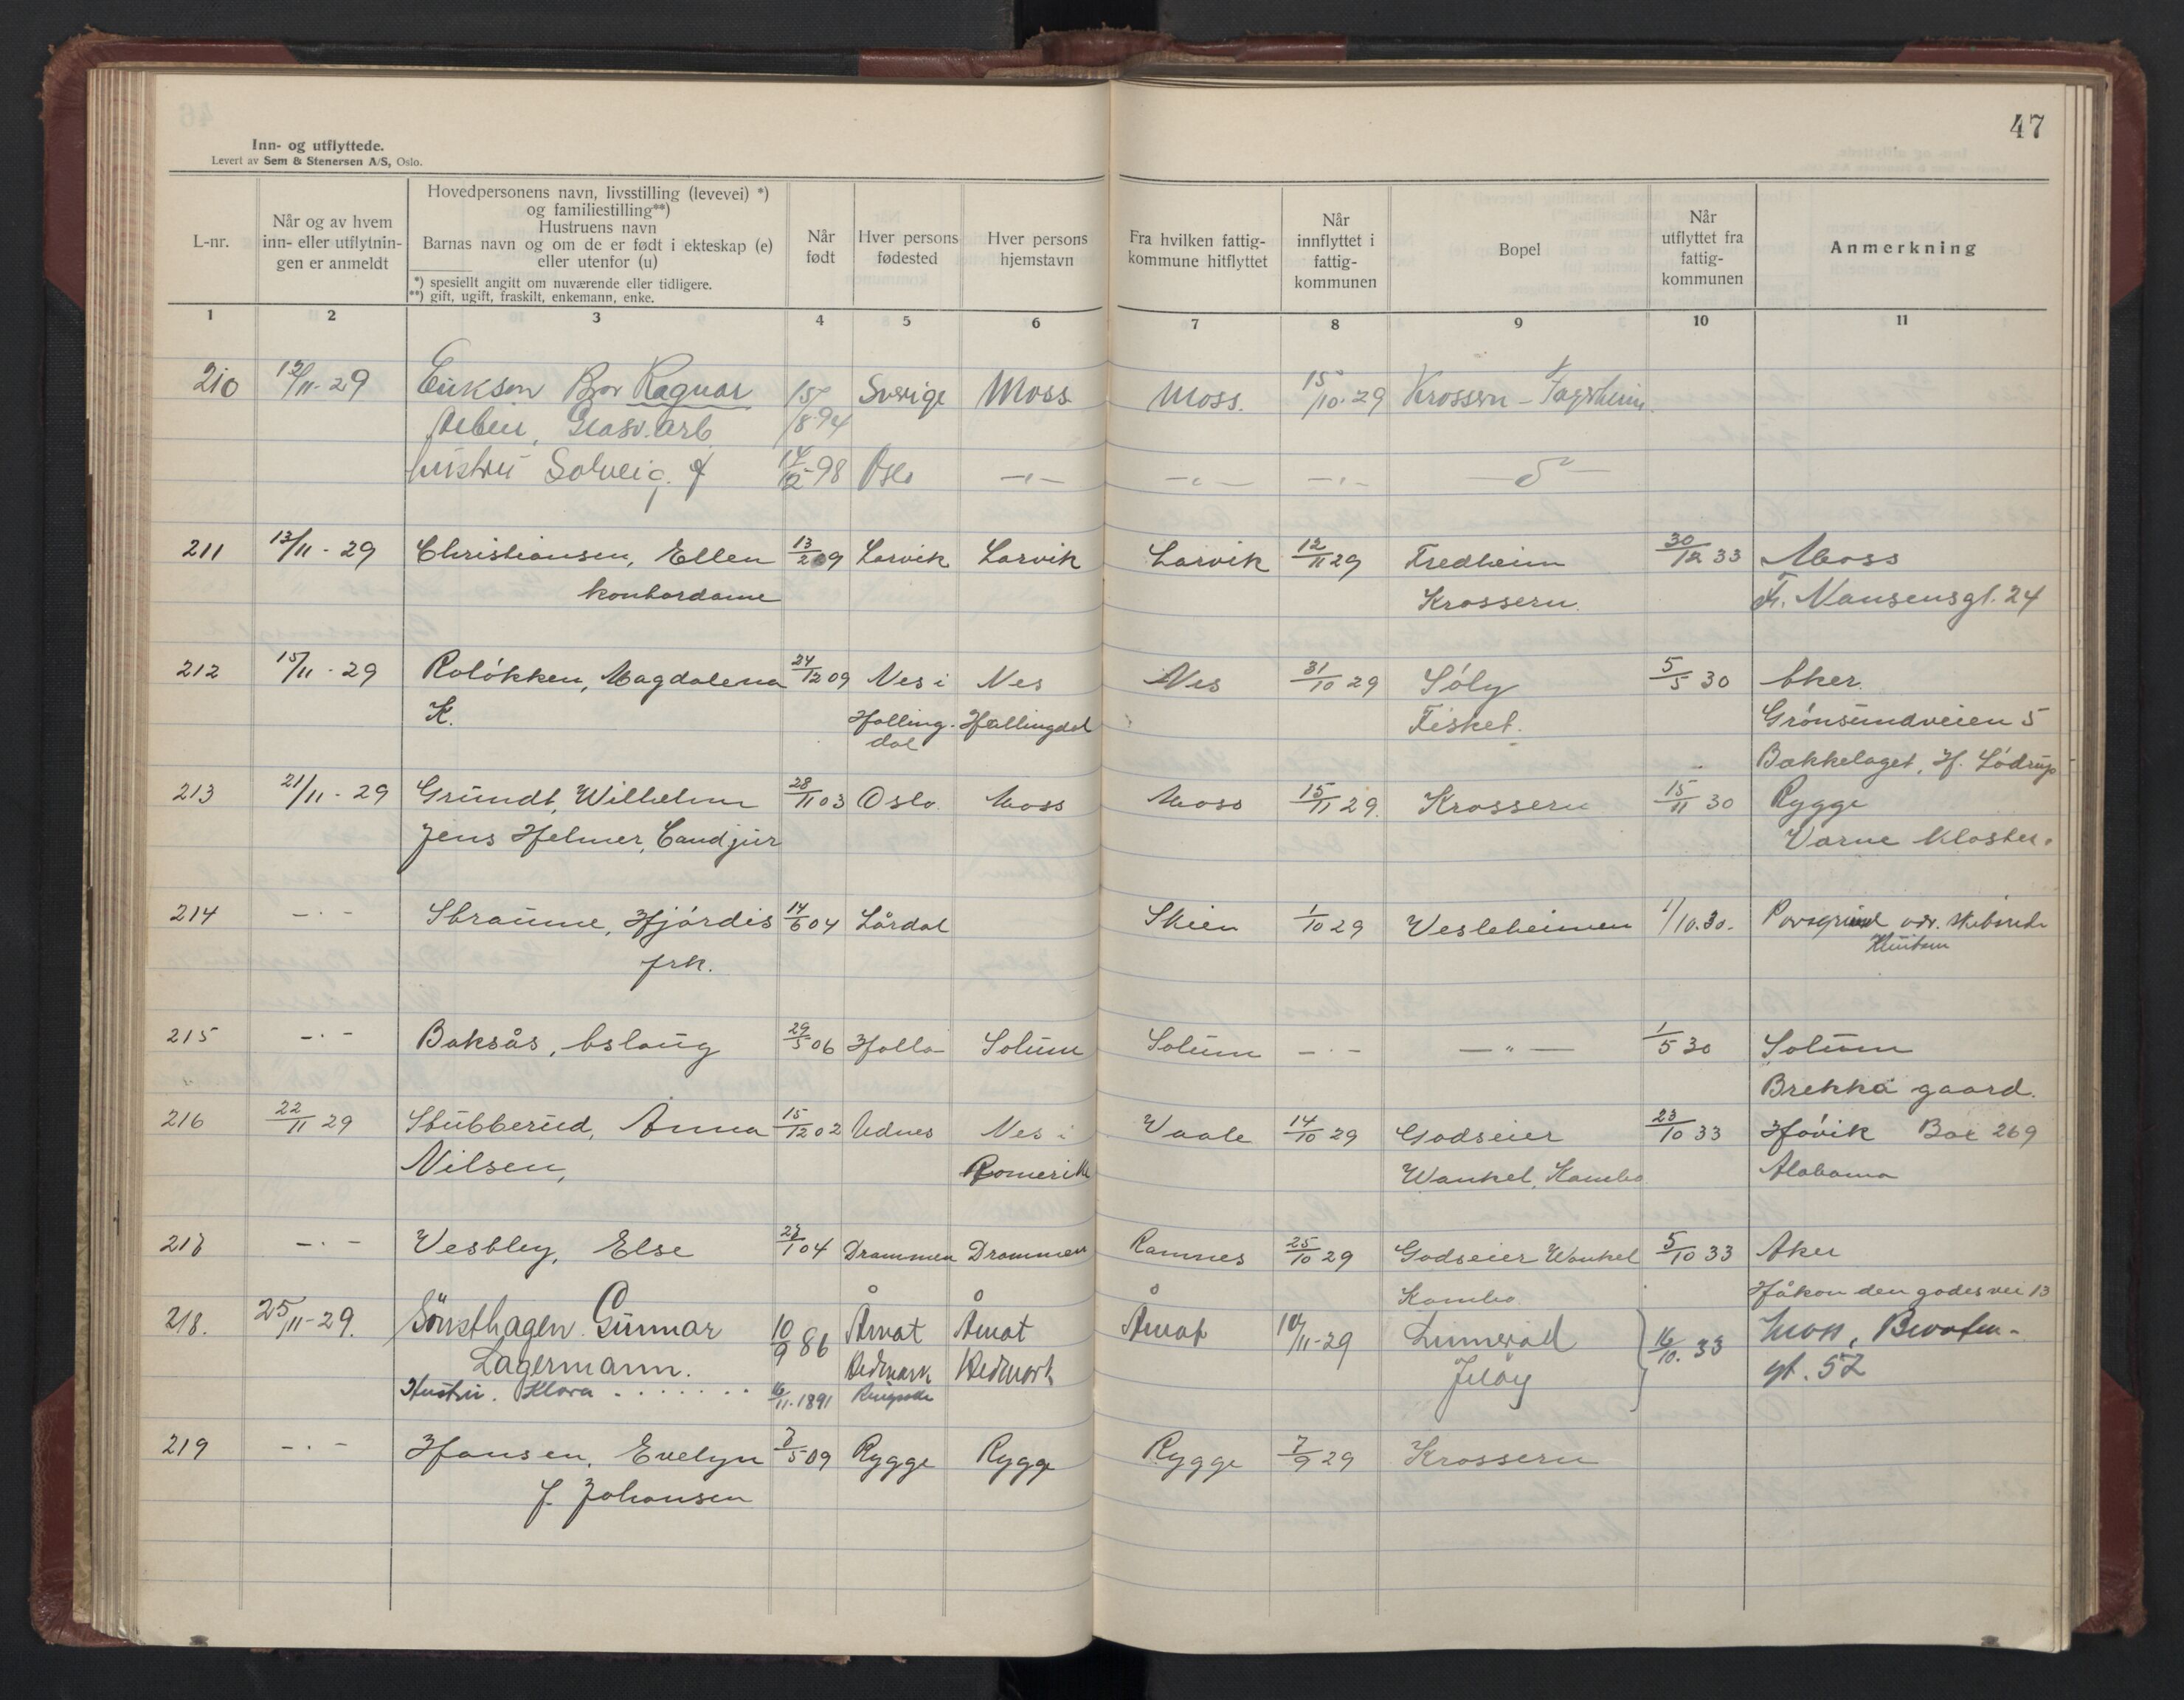 47
Inn- og utflyttede.
Levert av Sem & Stenersen A/S, Oslo.
L-nr.
Når og av hvem
inn- eller utflytnin-
gen er anmeldt
Hovedpersonens navn, livsstilling (levevei) *)
og familiestilling**)
Hustruens navn
Barnas navn og om de er født i ekteskap (e)
eller utenfor (u)
*) spesielt angitt om nuværende eller tidligere.
**) gift, ugift, fraskilt, enkemann, enke.
Når
født
Hver persons
fødested
Hver persons
hjemstavn
Fra hvilken fattig-
kommune hitflyttet
Når
innflyttet i
fattig-
kommunen
Bopel
Når
utflyttet fra
fattig-
kommunen
Anmerkning
1 2 3 4 5 6 7 8 9 10 11
210 12/11-29 Erikson Ragnar 15/8-94 Sverige Moss Moss. 15/10-29 Krossern - Fagerheim
Glasv.arb
hustru Solveig f 14/12-98 Oslo -"- -"- -"-
211 13/11-29 Christiansen, Ellen 13/2 09 Larvik Larvik Larvik 12/11 29 Fredheim 30/12 33 Moss
kontordame Krossern Fr. Nansensgt. 24
212 15/11-29 Roløkken, Magdalena 24/12 09 Nes i Nes Nes 31/10 29 Sóly 5/5 30 Aker.
K. Halling- Hallingdal Fisket. Grónsundveien 5
dal Bækkelaget, H. Lódrup
213 21/11-29 Grundt, Wilhelm 28/11 03 Oslo. Moss Moss 15/11 29. Krossern 15/11 30 Rygge
Jens Helmer, Cand jur Varne Kloster.
214 -"- Straume, Hjórdis 14/6 04 Lårdal Skien 1/10 29 Vesleheimen 1/10.30. Porsgrund
frk.
215 -"- Baksås, Aslaug 29/5 06 Holla Solum Solum -"- -"- 1/5 30 Solum
Brekka gaard.
216 22/11 29 Stubberud, Anna 15/12 02 Udnes Nes i Vaale 14/10 29 Godseier 23/10 33 Hóvik Box 269
Nilsen, Romerik Wankel, Kambo Alabama
217 -"- Vestby, Else 27/1 04 Drammen Drammen Ramnes 25/10 29 Godseier Wankel 5/10 33 Aker
Kambo Håkon den godes vei 13
218. 25/11-29. Sönsthagen Gunnar 10/9 86 Åmot Åmot Åmot 10/11-29 16/10. 33 Moss,
Lagermann. Hedmark Hedmark Jelöy gt. 52
Hustru. Klara . . . . . . . 16/11.1891
219 -"- Hansen, Evelyn 7/5 09 Rygge Rygge Rygge 7/9 29 Krossern
f. Johansen